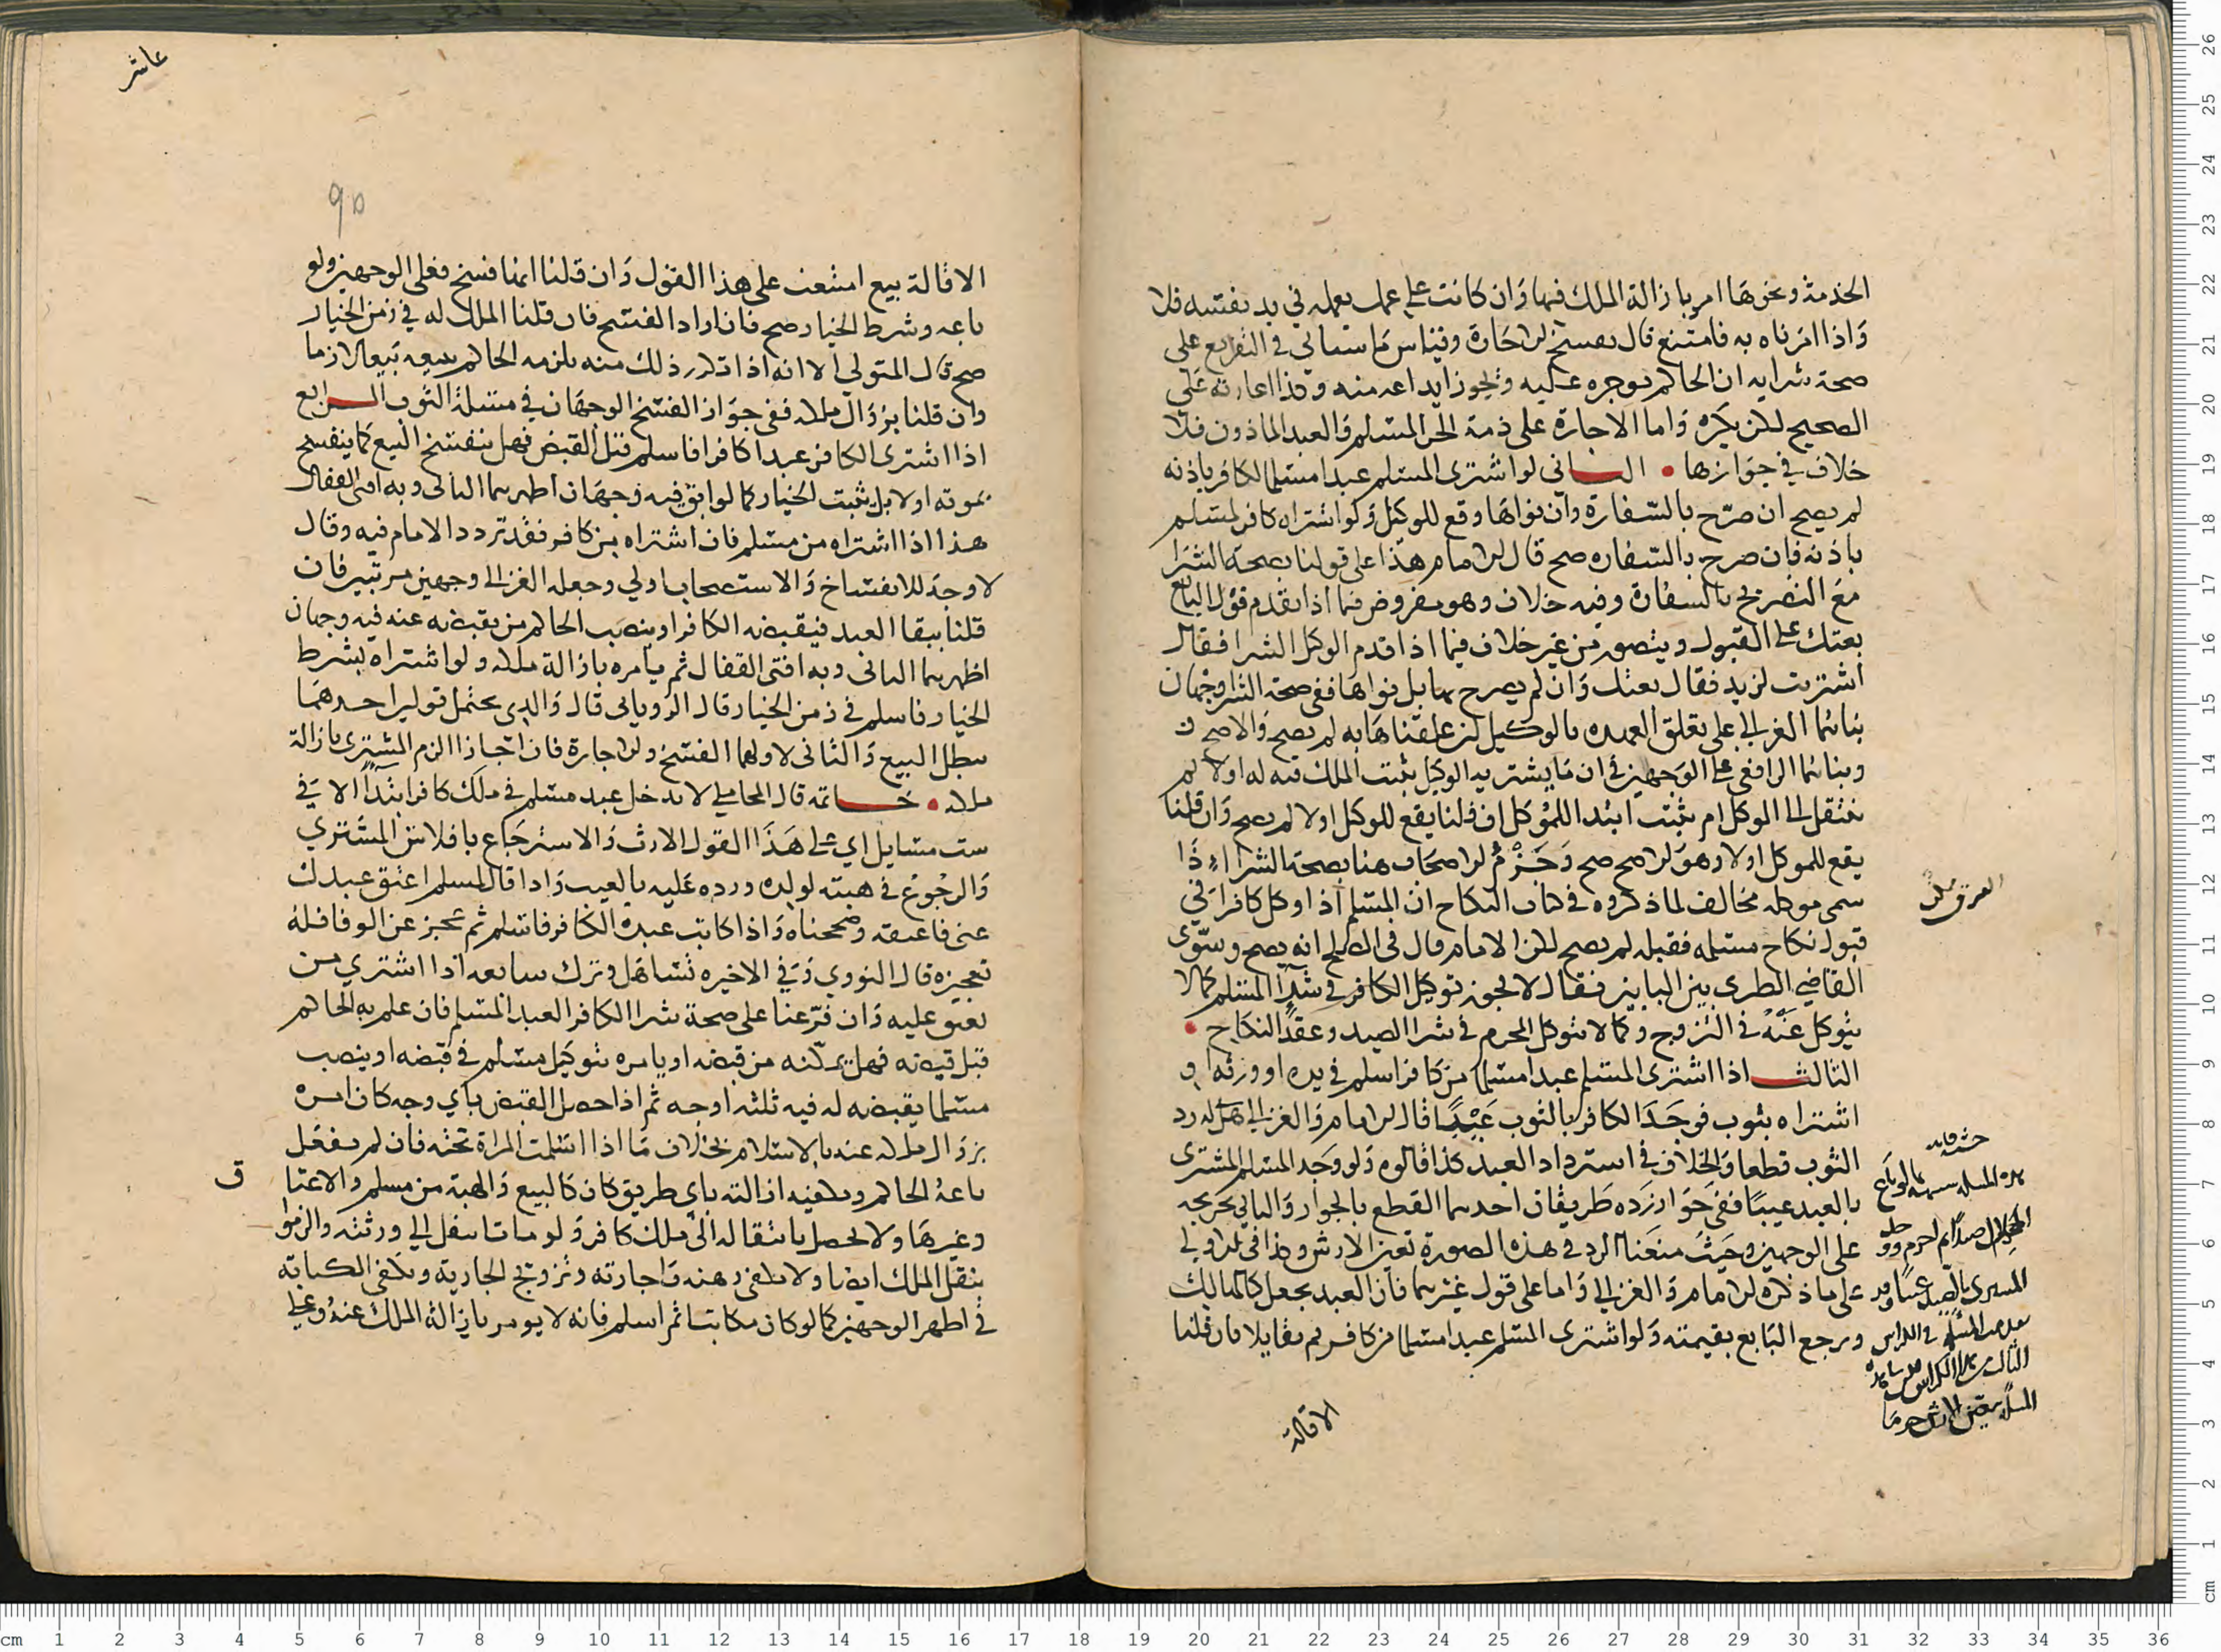 الخدمة ونحوها امر بازالة الملك فيها وان كانت على عمل يعمله في يد نفسه فلا
واذا امرناه به فامتنع قال يفسخ الاجارة وقياس ما سياتي في التفريع على
صحة شرايه ان الحاكم يوجره عليه ويجوز ايداعه منه وكذا اعارته على
الصحيح لكن يكره واما الاجارة على ذمة الحر المسلم والعبد الماذون فلا
خلاف في جوازها • الثاني لو اشترى المسلم عبدا مسلما لكافر باذنه
لم يصح ان صرح بالسفارة وان نواها وقع للوكيل ولو اشتراه كافر لمسلم
باذنه فان صرح بالسفاره صح قال الامام هذا على قولنا بصحة الشرا
مع التصريح بالسفارة وفيه خلاف وهو مفروض فيما اذا تقدم قول البائع
بعتك على القبول ويتصور من غير خلاف فيما اذا قدم الوكيل الشرا فقال
اشتريت لزيد فقال بعتك وان لم يصرح بها بل نواها ففي صحة الشرا وجهان
بناهما الغزالي على تعلق العهده بالوكيل ان علقناها به لم يصح والاصح
وبناهما الرافعي على الوجهين في ان ما يشتريه الوكيل يثبت الملك فيه له اولا ثم
ينتقل الى الموكل ام يثبت ابتدا للموكل ان قلنا يقع للوكيل اولا لم يصح وان قلنا
يقع للموكل اولا وهو الاصح صح وجزم الاصحاب هنا بصحة الشراء اذا
سمى موكله مخالف لما ذكروه في كتاب النكاح ان المسلم اذا وكل كافرا في
قبول نكاح مسلمه فقبله لم يصح لكن الامام قال في الصلح انه يصح وسوى
القاضي الطبري بين البابين فقال لا يجوز توكيل الكافر في شرآ المسلم كما لا
يتوكل عنه في التزوج وكما لا يتوكل المحرم في شرا الصيد وعقد النكاح •
الثالث اذا اشترى المسلم عبدا مسلما من كافر اسلم في يده او ورثه او
اشتراه بثوب فوجد الكافر بالثوب عيبا قال الامام والغزالي هل له رد
الثوب قطعا والخلاف في استرداد العبد كذا قالوه ولو وجد المسلم المشترى
بالعبد عيبا ففي جواز رده طريقان احدهما القطع بالجواز والثاني تخريجه
على الوجهين وحيث منعنا الرد في هذه الصورة تعين الارش وكذا في تلك
على ما ذكره الامام والغزالي واما على قول غيرهما فان العبد يجعل كالهالك
ويرجع البايع بقيمته ولو اشترى المسلم عبدا مسلما من كافر ثم تقايلا فان قلنا
الاقالة
عاشر
95
الاقالة بيع امتنعت على هذا القول وان قلنا انها فسخ فعلى الوجهين ولو
باعه وشرط الخيار صح فان اراد الفسخ فان قلنا الملك له في زمن الخيار
صح قال المتولي الا انه اذا تكرر ذلك منه يلزمه الحاكم ببيعه بيعا لازما
وان قلنا بزوال ملكه ففي جواز الفسخ الوجهان في مسلة الثوب الرابع
اذا اشترى الكافر عبدا كافرا فاسلم قبل القبض فهل ينفسخ البيع كما ينفسخ
بموته او لا بل يثبت الخيار كما لو ابق فيه وجهان اظهرهما الثاني وبه افتى القفال
هذا اذا اشتراه من مسلم فان اشتراه من كافر فقد تردد الامام فيه وقال
لا وجه للانفساخ والاستصحاب اولى وجعله الغزالي وجهين مرتبين فان
قلنا ببقا العبد فيقبضه الكافر او ينصب الحاكم من يقبضه عنه فيه وجهان
اظهرهما الثاني وبه افتى القفال ثم يامره بازالة ملكه ولو اشتراه بشرط
الخيار فاسلم في زمن الخيار قال الروياني قال والدي يحتمل قولين احدهما
يبطل البيع والثاني لا ولهما الفسخ والاجارة فان اجازا الزم المشتري بازالة
ملكه • خاتمه قال المحاملي لا يدخل عبد مسلم في ملك كافر ابتدآ الا في
ست مسايل اي على هذا القول الارث والاسترجاع بافلاس المشتري
والرجوع في هبته لولده ورده عليه بالعيب واذا قال لمسلم اعتق عبدك
عني فاعتقه وصححناه واذا كاتب عبده الكافر فاسلم ثم عجز عن الوفا فله
تعجيزه قال النووي وفي الاخيره تساهل وترك سابعه اذا اشترى من
يعتق عليه وان فرعنا على صحة شرا الكافر العبد المسلم فان علم به الحاكم
قبل قبضه فهل يمكنه من قبضه او يامره بتوكيل مسلم في قبضه او ينصب
مسلما يقبضه له فيه ثلثة اوجه ثم اذا حصل القبض باي وجه كان امره
بزوال ملكه عنه بالاسلام بخلاف ما اذا اسلمت المراة تحته فان لم يفعل
باعه الحاكم ويكفيه ازالته باي طريق كان كالبيع والهبة من مسلم والاعتا ق
وغيرها ولا يحصل بانتقاله الى ملك كافر ولو مات انتقل الى ورثته والزموا
بنقل الملك ايضا ولا يكفي رهنه واجارته وتزويج الجارية وتكفي الكتابة
في اظهر الوجهين كما لو كان مكاتبا ثم اسلم فانه لا يومر بازالة الملك عنه وعلى